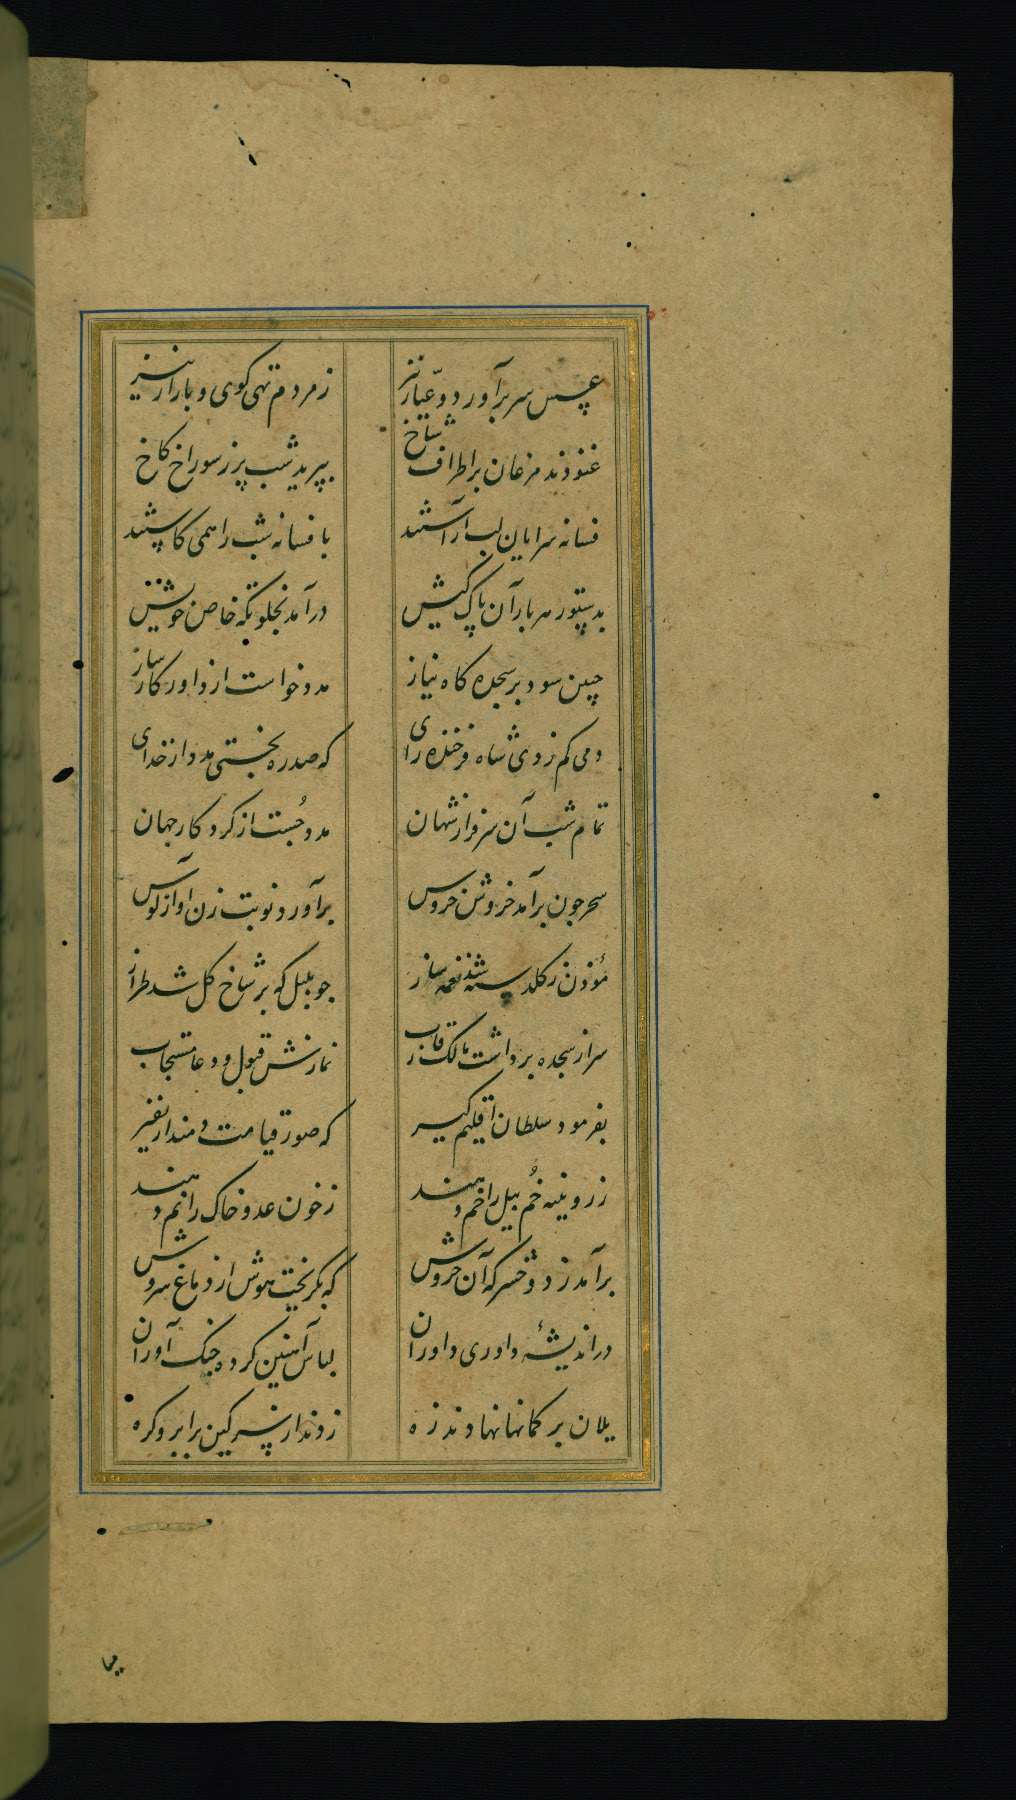 عسس سر برآورد و عیار نیز زمردم تهی کوی و بازار نیز
غنودند مرغان بر اطراف شاخ بپرید شب پرز سوراخ کاخ
فسانه سرایان لب آراستند بافسانه شب را همی کاستند
بدستور هر بار آن پاک کیش درآمد بخلوتگه خاص خویش
جبین سود بر سجده کاه نیاز مدد خواست از داور کارساز
دمی کم زدی شاه فرخنده رای که صد ره نجستی مدد از خدای
تمام شب آن سرفراز شهان مدد جُست از کردکار جهان
سحر چون برآمد خروش خروس برآورد نوبت زن آواز کوس
مؤذن ز کلدسته شد نغمه ساز چو بلبل که بر شاخ کل شد طراز
سر از سجده برداشت مالک رقاب نمازش قبول و دعا مستجاب
بفرمود سلطان اقلیم کیر که صور قیامت دمند از نفیر
ز رویینه خُم پیل را خم دهند ز خون عدو خاک را نم دهند
برآمد ز دو خسرکه آن خروش که بکریخت هوش از دماغ سروش
در اندیشهٔ داوری داوران لباس آهنین کرده جنک آوران
یلان بر کمانها نهادند زه زدند از سر کین بر ابرو کره